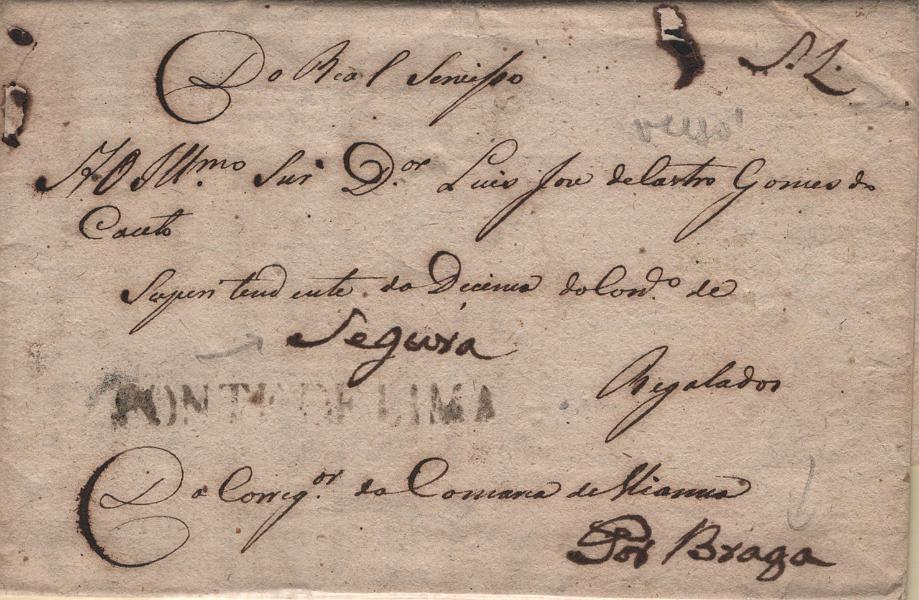 Do Real Servisso
S. L.
verso
AO Ill.mo Snr D.or Luis Joze deCastro Gomes do
Couto
Superitendente da Decima doCon.o de
Segura
Regalados
PONTE DE LIMA
Do Correg.or da Comarca de Vianna
Por Braga